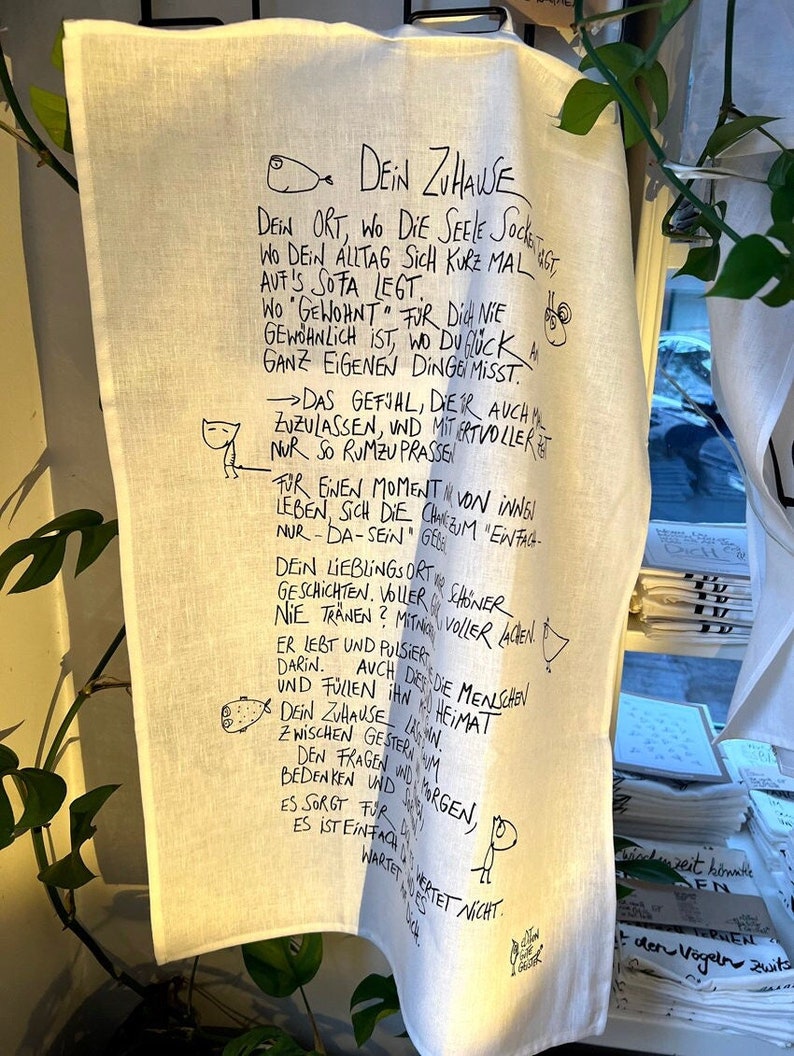 DEIN ZUHAUSE
DEIN ORT, WO DIE SEELE SOCKEN TRÄGT,
WO DEIN ALLTAG SICH KURZ MAL
AUF'S SOFA LEGT.
WO "GEWOHNT" FÜR DICH NIE
GEWÖHNLICH IST, WO DU GLÜCK AN
GANZ EIGENEN DINGEN MISST.
→ DAS GEFÜHL, DIE TÜR AUCH MAL
ZUZULASSEN, UND MIT WERTVOLLER ZEIT
NUR SO RUMZUPRASSEN
FÜR EINEN MOMENT NUR VON INNEN
LEBEN, SICH DIE CHANCE ZUM "EINFACH-
NUR-DA-SEIN" GEBEN
DEIN LIEBLINGSORT SCHÖNER
GESCHICHTEN. VOLLER VOLLER LACHEN.
NIE TRÄNEN? MITNICHTEN.
ER LEBT UND PULSIERT DIE MENSCHEN
DARIN. AUCH DIESE
UND FÜLLEN IHN MIT HEIMAT
DEIN ZUHAUSE LÄSST RAUM
ZWISCHEN GESTERN MORGEN,
DEN FRAGEN UND
BEDENKEN UND SORGEN
ES SORGT FÜR WERTET NICHT.
ES IST EINFACH UND ES
WARTET AUF DICH.
EDITION
GUTE
GEISTER
DICH
zwischenzeit könnte
den Vögeln zwits